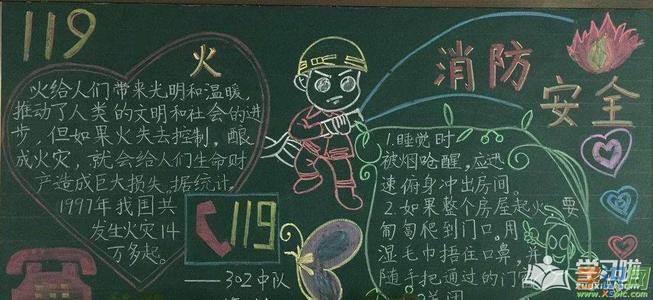 119
火
火给人们带来光明和温暖,
推动了人类的文明和社会的进
步,但如果火失去控制,酿
成火灾,就会给人们生命财
产造成巨大损失.据统计,
1997年我国共
发生火灾14
万多起。
119
——302中队
消防
安全
1.睡觉时
被烟呛醒,应迅
速俯身冲出房间。
2.如果整个房屋起火,要
匍匐爬到门口。用
湿毛巾捂住口鼻,并
随手把通过的门窗
关闭
学习啦
www.
X5plc.com